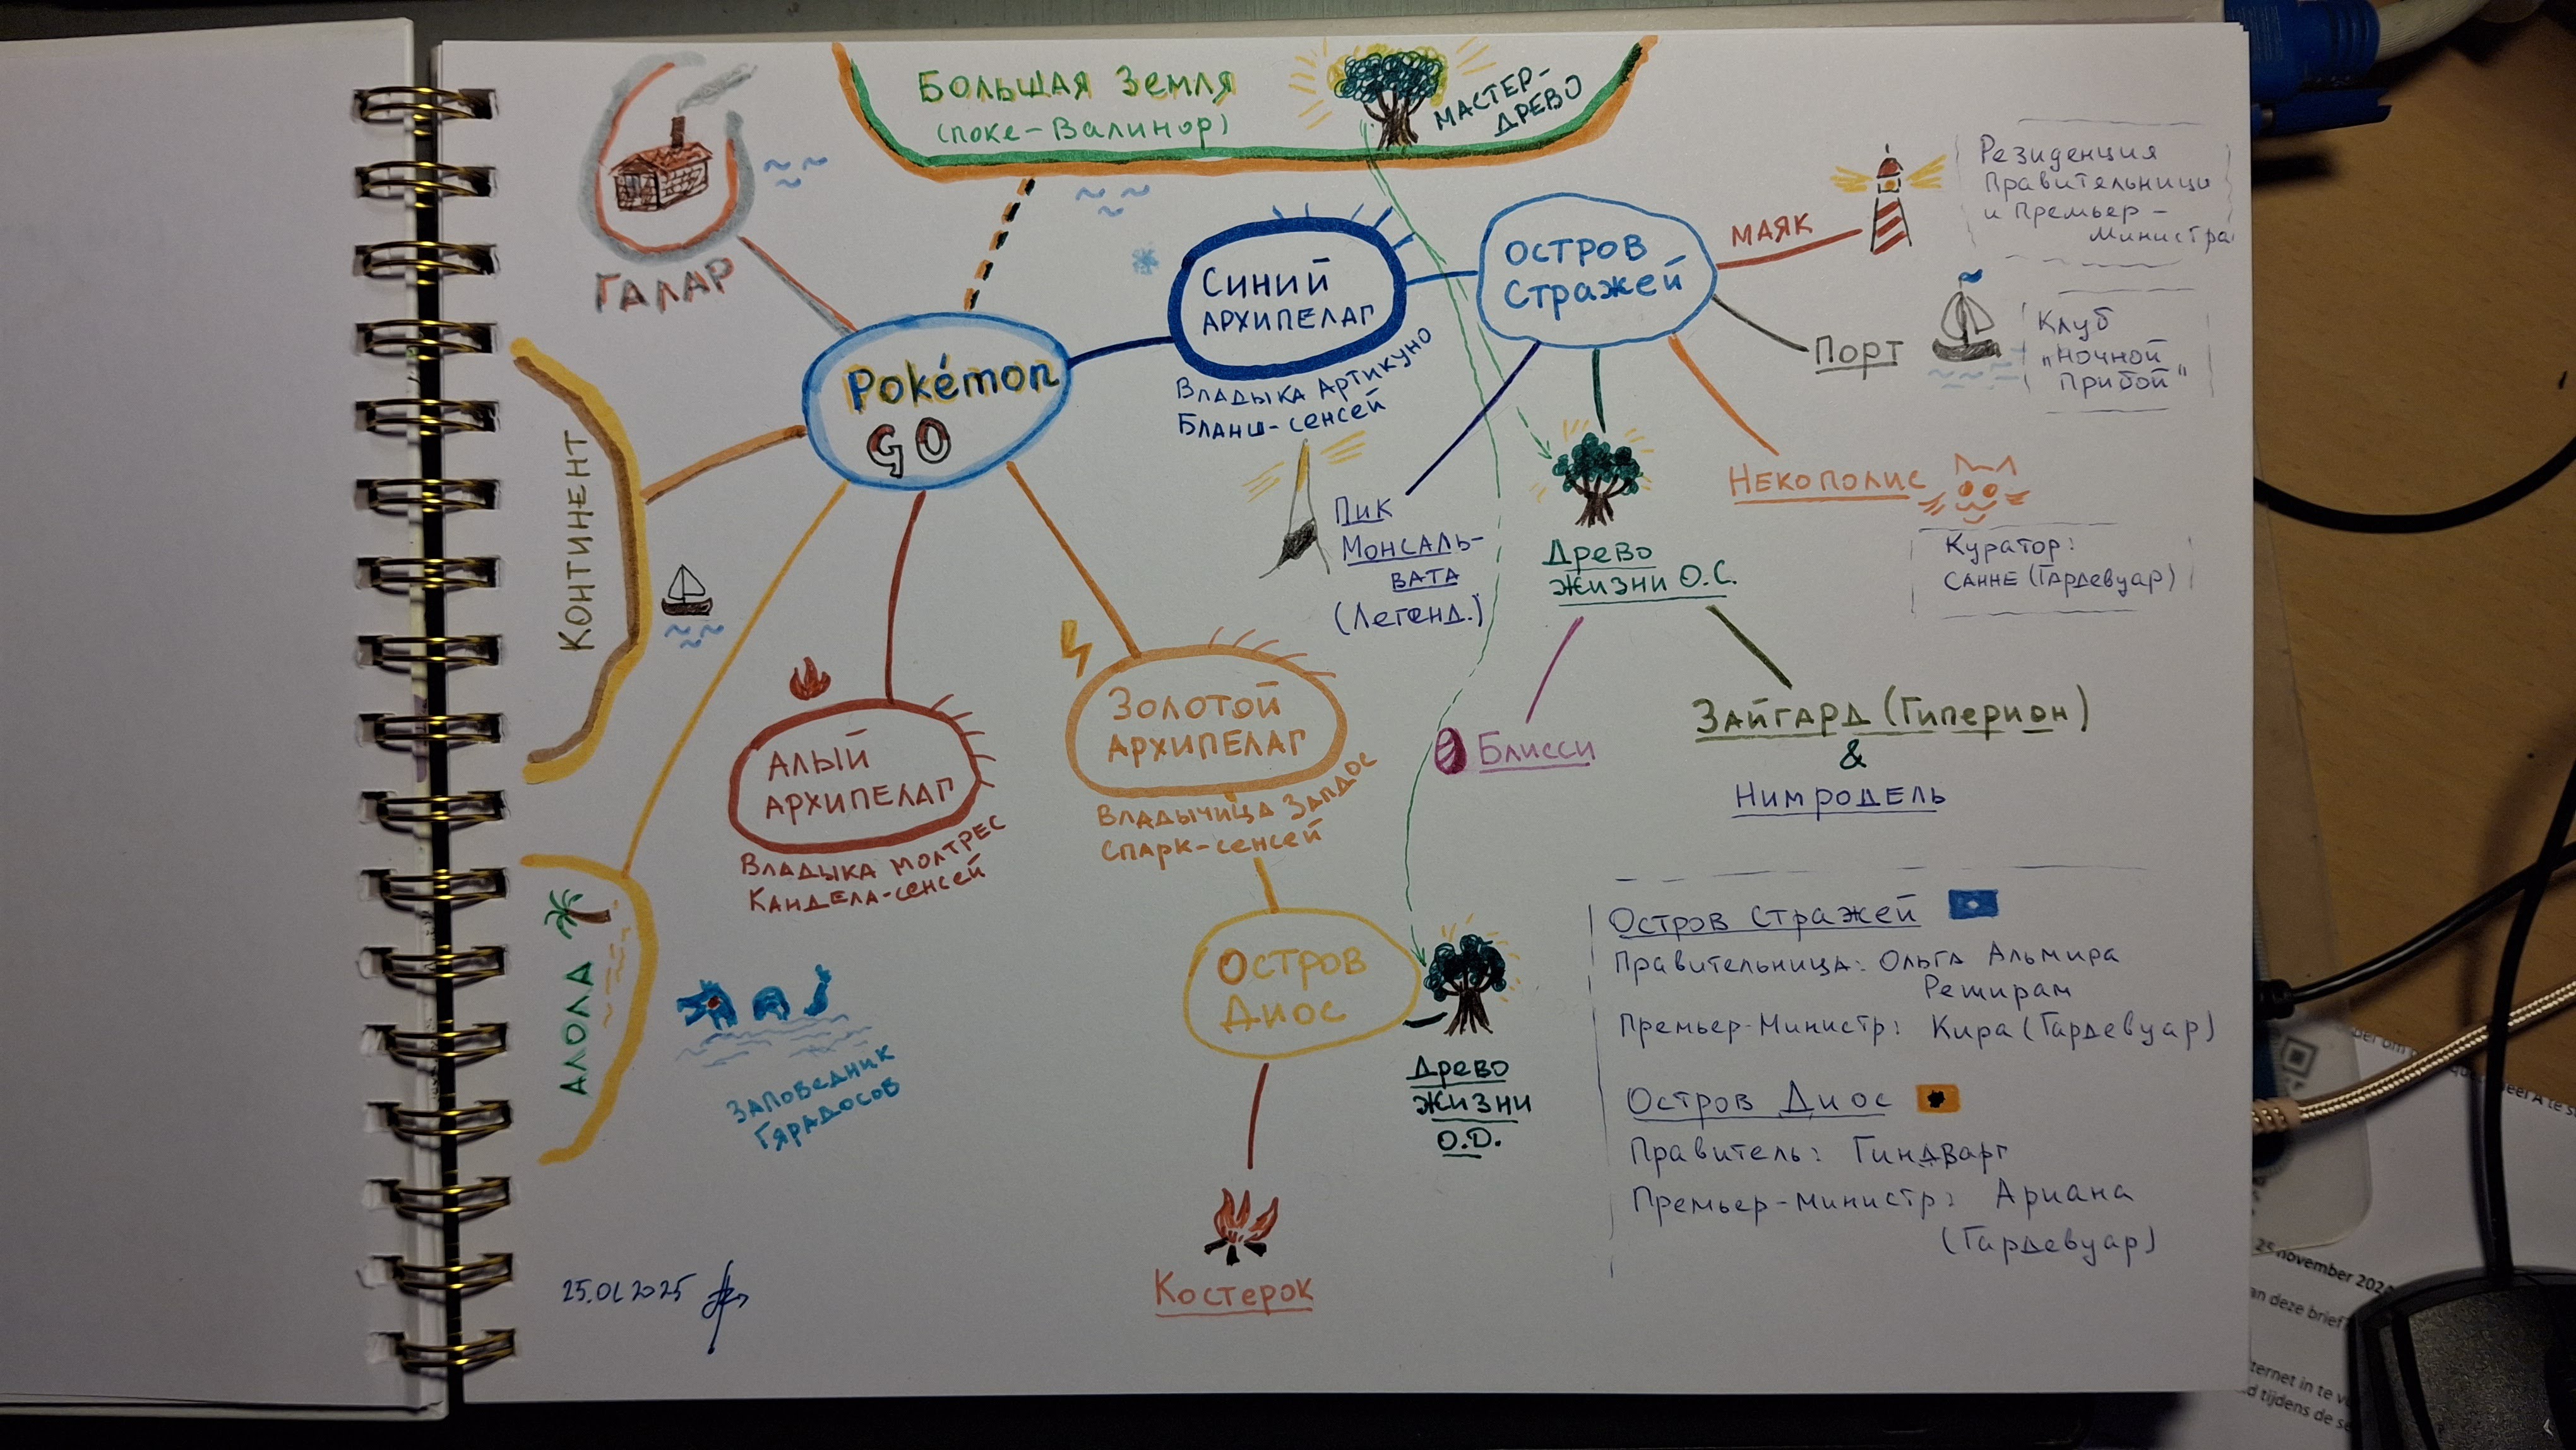 БОЛЬШАЯ ЗЕМЛЯ
(поке-Валинор)
МАСТЕР-
ДРЕВО
ГАЛАР
Pokémon
GO
СИНИЙ
АРХИПЕЛАГ
Владыка Артикуно
Бланш-сенсей
ОСТРОВ
Стражей
МАЯК
Резиденция
Правительницы
и Премьер-
Министра
Порт
Клуб
"Ночной
Прибой"
Некополис
Куратор:
САННЕ (Гардевуар)
Пик
Монсаль-
вата
(Легенд.)
Древо
жизни О.С.
Блисси
Зайгард (Гиперион)
&
Нимродель
КОНТИНЕНТ
АЛЫЙ
АРХИПЕЛАГ
Владыка Молтрес
Кандела-сенсей
ЗОЛОТОЙ
АРХИПЕЛАГ
Владычица Запдос
Спарк-сенсей
АЛОЛА
Заповедник
Гярадосов
Остров
Диос
Древо
Жизни
О.Д.
Костерок
Остров Стражей
Правительница: Ольга Альмира
Реширам
Премьер-Министр: Кира (Гардевуар)
Остров Диос
Правитель: Гиндварг
Премьер-министр: Ариана
(Гардевуар)
25.01.2025
25 november 2024
an deze brief?